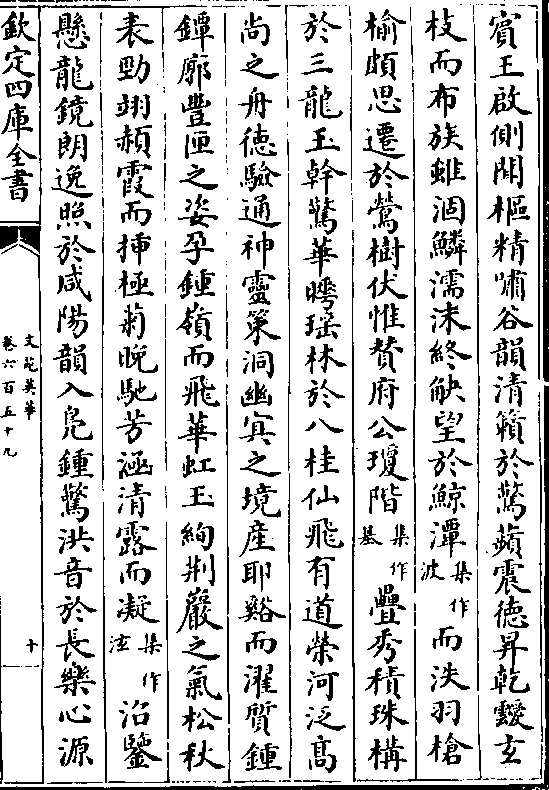 賓王啟側聞樞精嘯谷韻清籟於驚蘋震徳昇乾靉玄
枝而布族雖涸鱗濡沫終觖望於鯨潭集作波而決羽槍
榆頗思遷於鶯樹伏惟賛府公瓊階集作基疊秀積珠構
於三龍玉幹驚華晞瑶林於八桂仙飛有道榮河泛髙
尚之舟徳驗通神靈策洞幽㝠之境産耶谿而濯質鍾
鐔廓豐匣之姿孕鍾嶺而飛華虹玉絢荆巖之氣松秋
表勁翊頳霞而挿極菊晩馳芳涵清露而凝集作泫沼鑒
懸龍鏡朗逸照於咸陽韻入鳬鍾驚洪音於長樂心源
欽定四庫全書
文苑英華
卷六百五十九
十